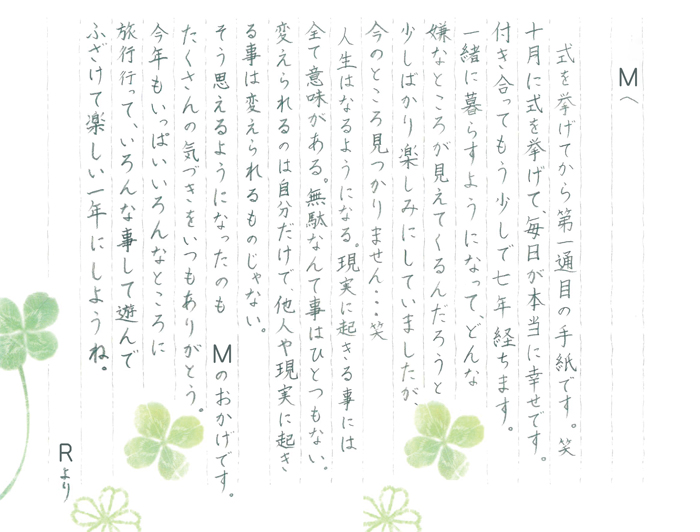 Mへ
式を挙げてから第一通目の手紙です。笑
十月に式を挙げて、毎日が本当に幸せです。
付き合ってもう少しで七年経ちます。
一緒に暮らすようになって、どんな
嫌なところが見えてくるんだろうと
少しばかり楽しみにしていましたが、
今のところ見つかりません・・・笑
人生はなるようになる。現実に起きる事には
全て意味がある。無駄なんて事はひとつもない。
変えられるのは自分だけで、他人や現実に起き
る事は変えられるものじゃない。
そう思えるようになったのも　Mのおかげです。
たくさんの気づきをいつもありがとう。
今年もいっぱいいろんなところに
旅行行って、いろんな事して遊んで
ふざけて楽しい一年にしようね。
Rより